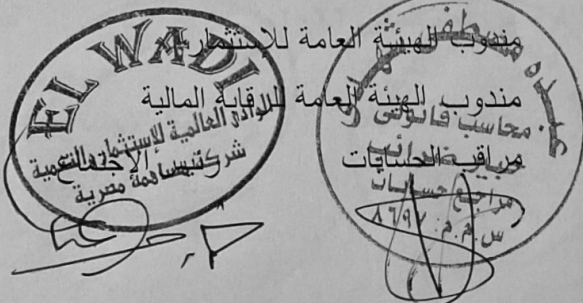 مندوب الهيئة العامة للاستثمار
مندوب الهيئة العامة للرقابة المالية
مراقب الحسابات
الاجتماع
EL WADI
الوادى العالمية للاستثمار والتنمية
شركة مساهمة مصرية
عبده مصطفى
محاسب قانونى
مراجع حسابات
س.م.م: ٨٦٩٧